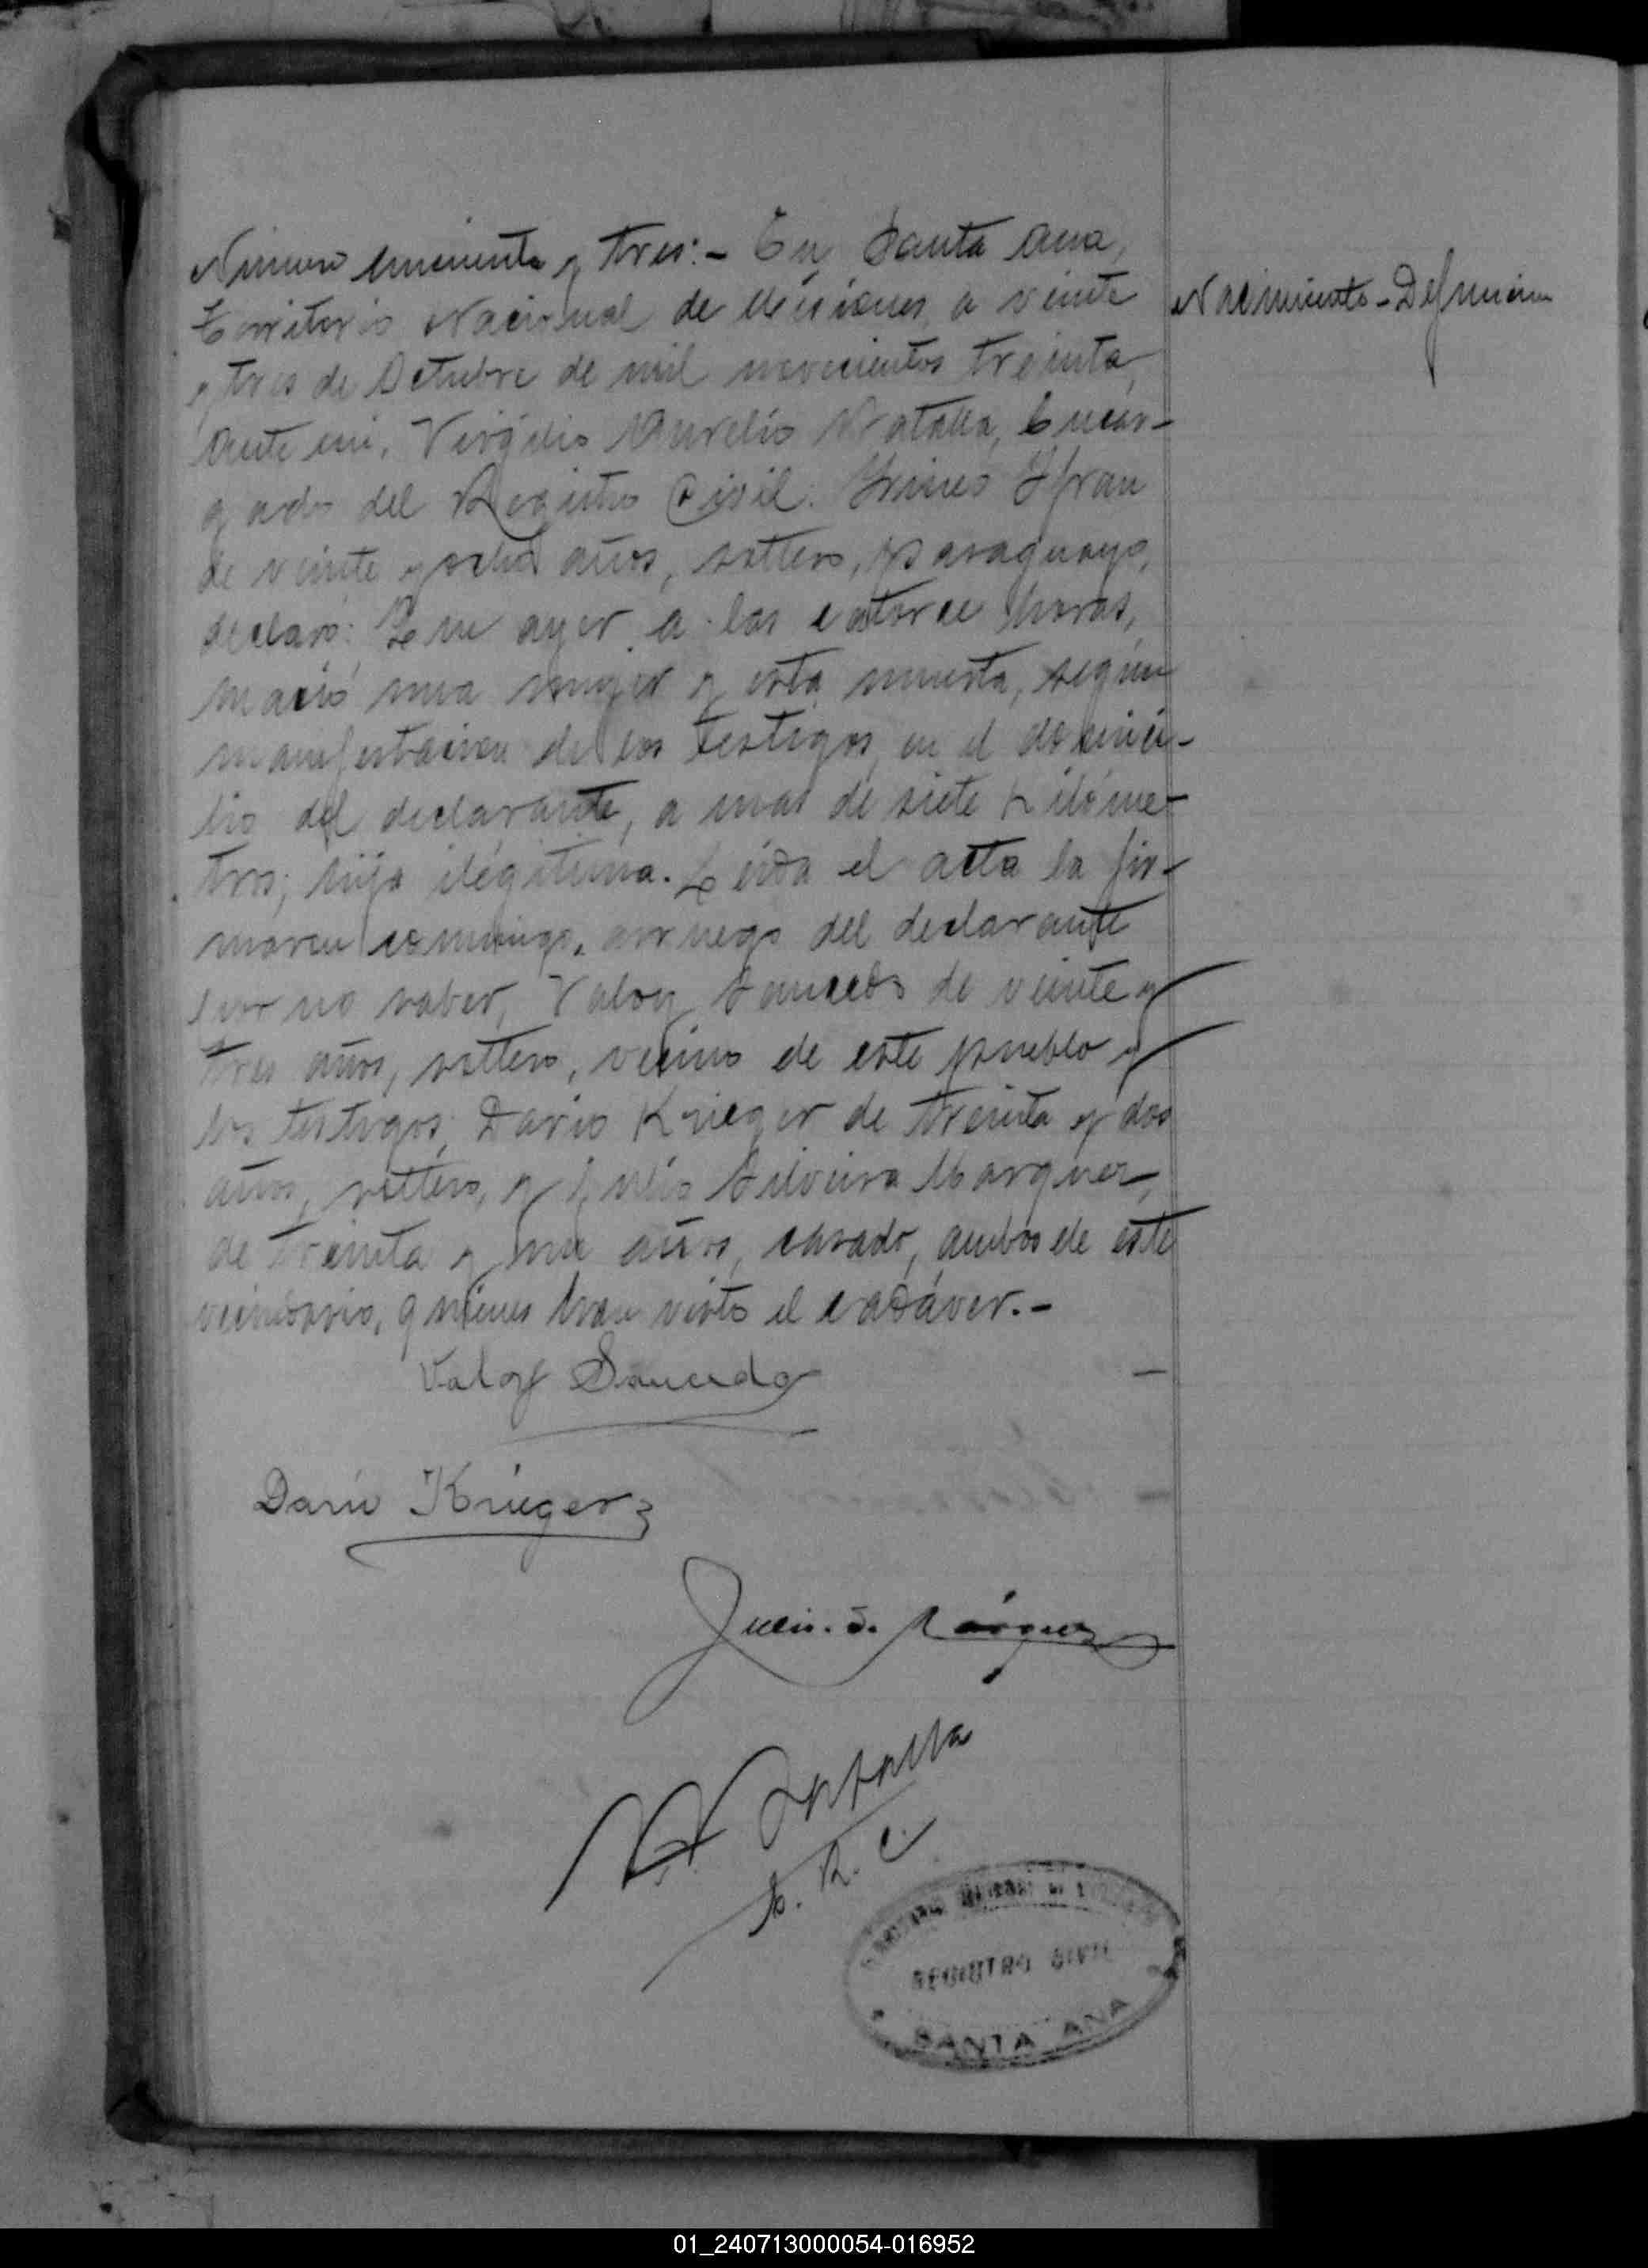 Número cincuenta y tres:- En Santa Ana,
Nacimiento-Defunción
Territorio Nacional de Misiones, a veinte
y tres de Octubre de mil novecientos treinta,
ante mi, Virgilio Aurelio Natalla, Encar-
gado del Registro Civil: Irineo Ifran
de veinte y ocho años, soltero, paraguayo,
declaró: Que ayer a las catorce horas,
nació una mujer y esta muerta, según
manifestacion de los testigos, en el domici-
lio del declarante, a mas de siete kilóme-
tros; hija ilegitima. Leida el acta la fir-
maron conmigo, a ruego del declarante
por no saber, Valoy Saucedo de veinte y
tres años, soltero, vecino de este pueblo y
los testigos; Dario Krieger de treinta y dos
años, soltero, y Julio Silveira Marquez,
de treinta y un años, casado, ambos de este
vecindario, quienes han visto el cadáver.-
Valoy Saucedo
Dario Krieger
Julio. S. Márquez
Natalla
E. R. C.
REGISTRO CIVIL
SANTA ANA
01_240713000054-016952